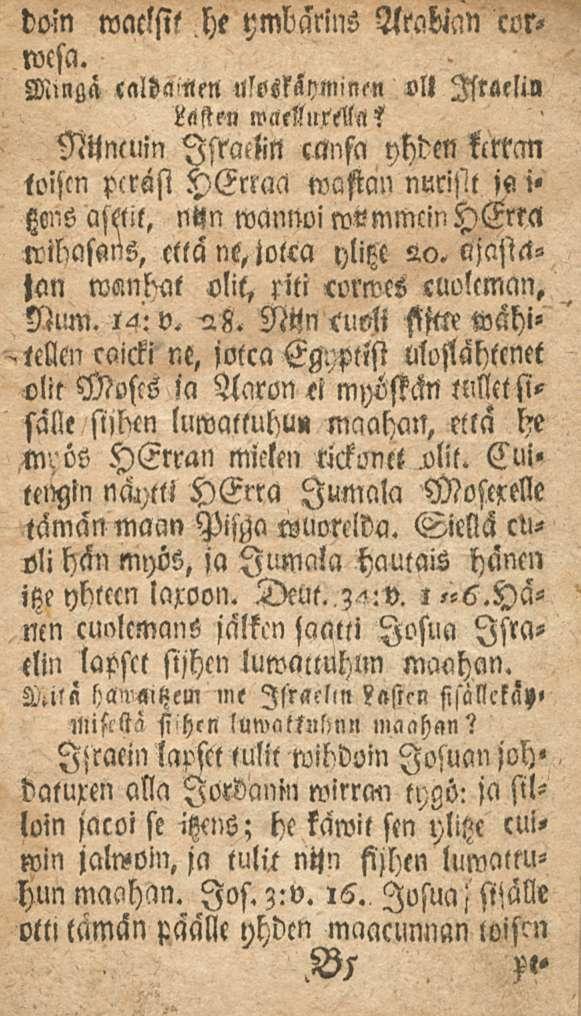 doin waelsit he ymbärins Arabian cor-
wesa.
Mingä caldainen uloskäyminen oli Israelin
Lasten waelluxella?
Nijncuin Israelin cansa yhden kerran
toisen peräst HErraa wastan nurisit ja i-
tzens asetit, nijn wannoi wummein HErra
wihasans, että ne, jotca ylitze 20. ajasta-
jan wanhat olit, piti corwes cuoleman,
Num. 14: v. 28. Nijn cuoli sijtte wähi-
tellen caicki ne, jotca Egyptist uloslähtenet
olit Moses ja Aaron ei myöskän tullet si-
sälle sijhen luwattuhun maahan, että he
myös HErran mielen rickonet olit. Cui-
tengin näytti HErra Jumala Mosexelle
tämän maan Pisga wuorelda. Siellä cu-
oli hän myös, ja Jumala hautais hänen
itze yhteen laxoon. Deut. 34: v. 1--6. Hä-
nen cuolemans jälken saatti Josua Isra-
elin lapset sijhen luwattuhun maahan.
Mitä hawaitzem me Israelin Lasten sisällekäy-
misestä sijhen luwattuhun maahan?
Israein lapset tulit wihdoin Josuan joh-
datuxen alla Jordanin wirran tygö: ja sil-
loin jacoi se itzens; he käwit sen ylitze cui-
win jalwoin, ja tulit nijn sijhen luwattu-
hun maahan. Jos. 3: v. 16. Josua, sijälle
otti tämän päälle yhden maacunnan toisen
B5 pe-